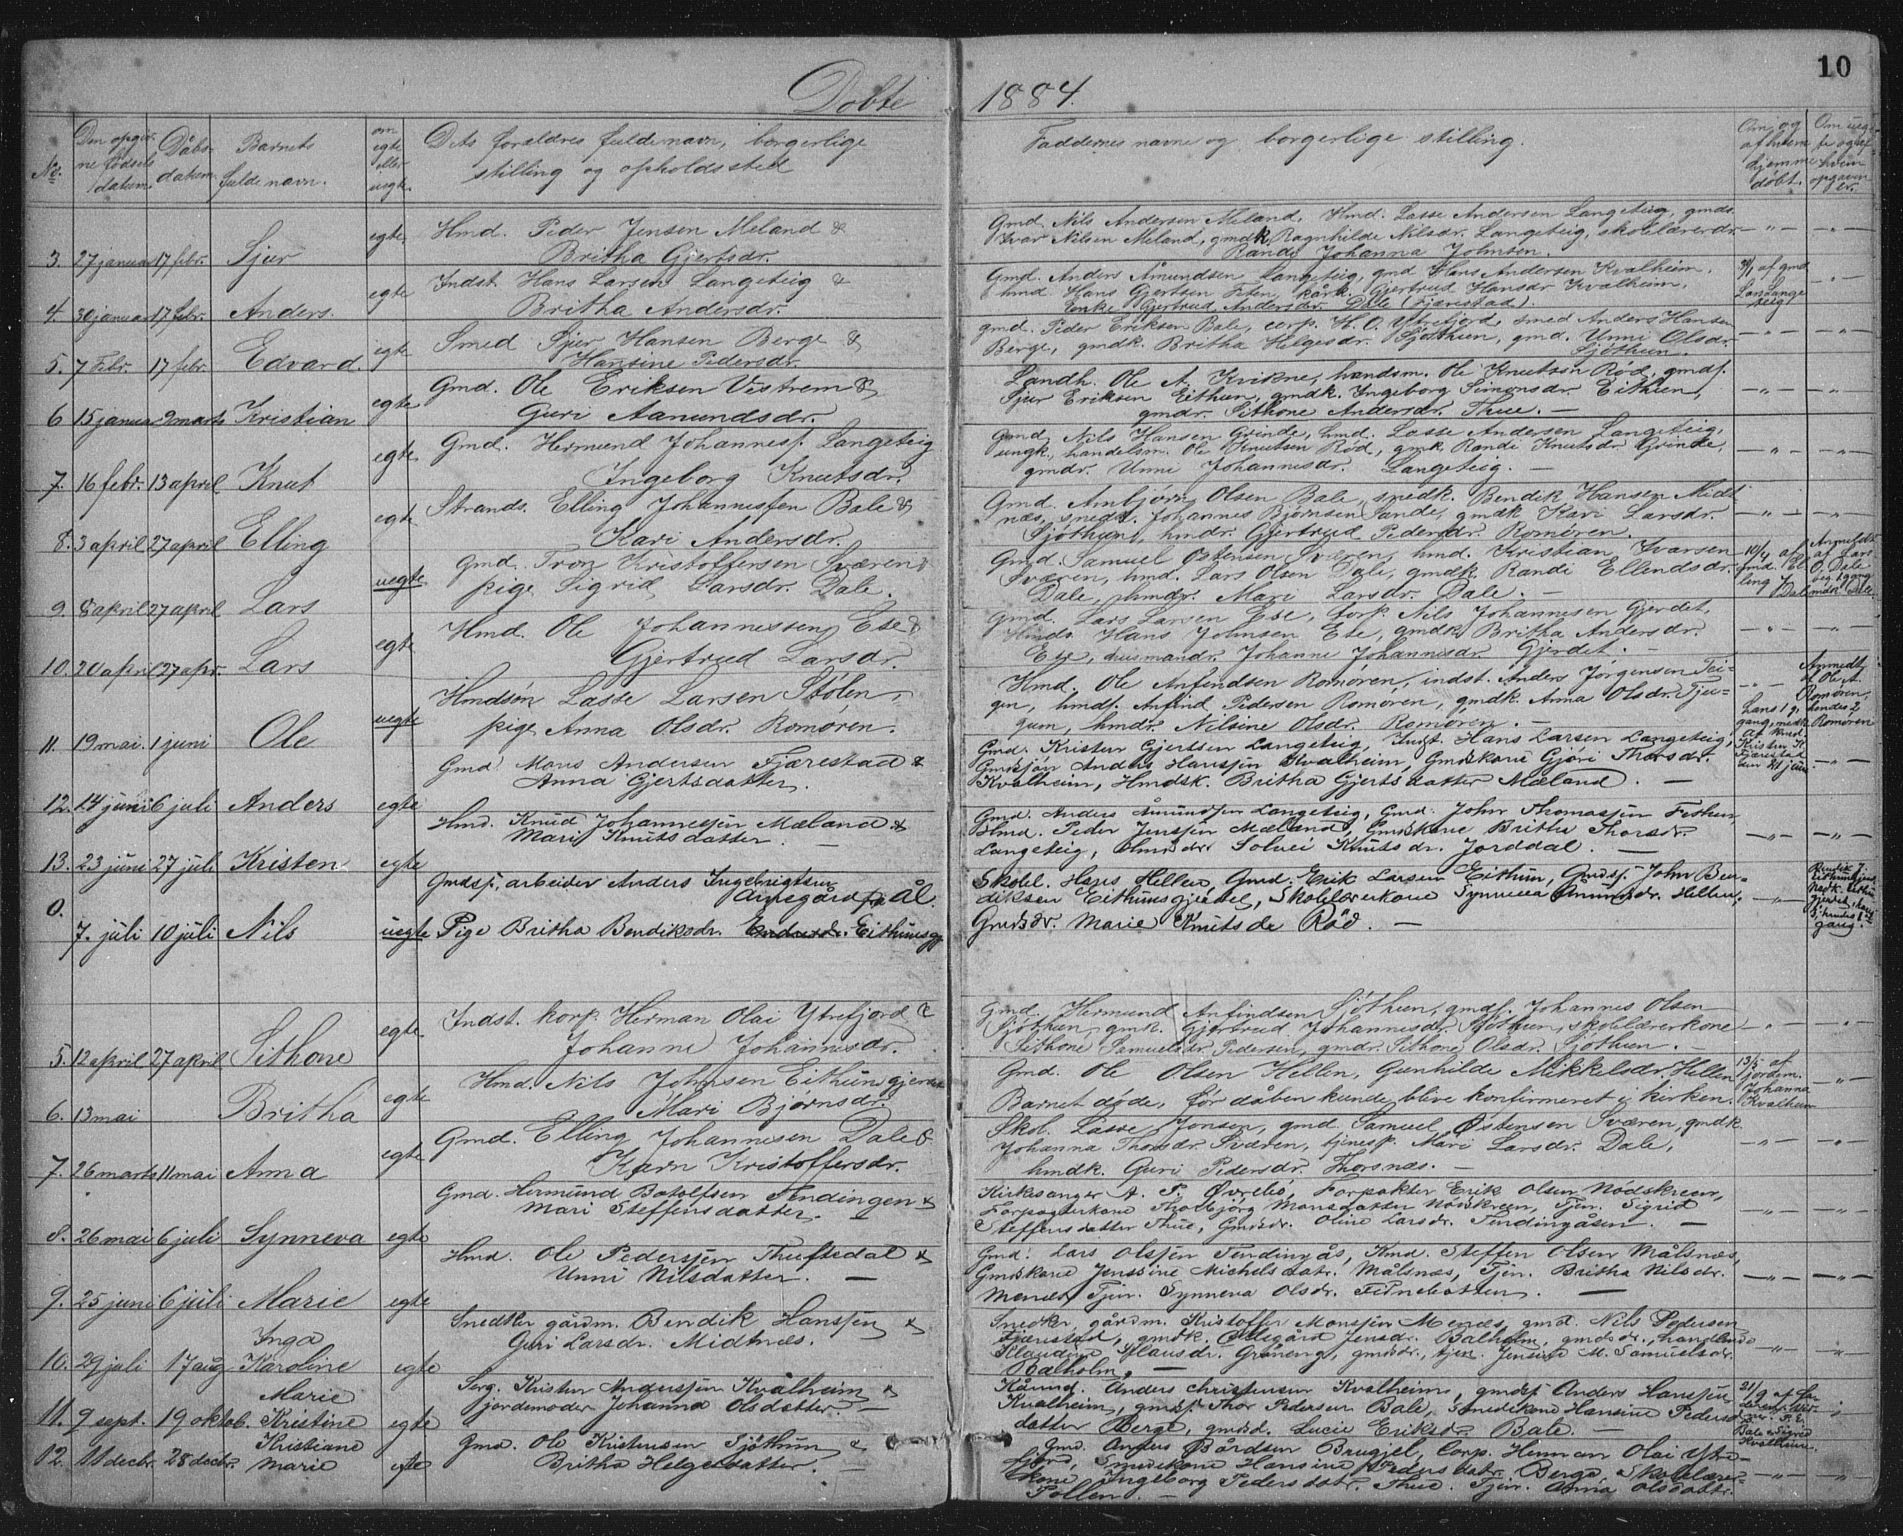 10
Døbte 1884.
No.
Den opgiv-
ne fødsels
datum
Dåbs-
datum
Barnets
fulde navn.
om
egte
eller
uegte
Dets forældres fulde navn, borgerlige
stilling og opholdssted
Faddernes navne og borgerlige stilling.
Om og
af hvem
hjemme
døbt.
3. 27 januar 17 febr. Sjur egte
Hmd. Peder Jensen Meland &
Britha Gjertsdr.
Gmd. Nils Andersen Meland, Hmd. Lasse Andersen Langeteig, gmds.
Ivar Nilsen Meland, gmdk. Ragnhilde Nilsdr. Langeteig, skolelærerdr.
Randi Johanna Johnsen.
4. 30 januar 17 febr. Anders egte
Indst. Hans Larsen Langeteig &
Britha Andersdr.
Gmd. Anders Åmundsen Langeteig, gmd Hans Andersen Kvalheim,
hmd. Hans Gjertsen Feten, kårk. Gjertrud Hansdr Kvalheim,
Enke Gjertrud Andersdr. Dale (Fjærestad).
5. 7 Febr. 17 febr. Edvard. egte
Smed Sjur Hansen Berge &
Hansine Pedersdr.
gmd. Peder Eriksen Bale, corp. H. O. Ytrefjord, smed Anders Hansen
Berge, gmdk. Britha Helgesdr. Sjøthun, gmd. Unni Olsdr.
Sjøthun.
6 15 januar 9 marts Kristian egte
Gmd. Ole Eriksen Vestrem &
Guri Aamundsdr.
Landh. Ole A. Kvikne, handsm. Ole Knutsøn Rød, gmds.
Sjur Eriksen Eithun, gmdk. Ingeborg Simonsdr. Eithun,
gmdr. Sithone Andersdr. Thue. —
7. 16 febr. 13 april Knut egte
Gmd. Hermund Johanness. Langeteig
Ingeborg Knutsdr.
Gmd. Nils Hansen Grinde, hmd. Lasse Andersen Langeteig,
ungk., handelsm. Ole Knutsen Rød, gmk Randi Knutsdr. Grinde,
gmdr. Unni Johannesdr. Langeteig. —
8. 3 april 27 april Elling egte
Strands. Elling Johannessen Bale &
Kari Andersdr.
Gmd. Anbjørn Olsen Bale, snedk. Bendik Hansen Midt
næs, snedk. Johannes Bjørnsen Sande, gmdk Kari Larsdr.
Sjøthun, hmdr. Gjertrud Pedersdr. Romøren.
9. 8 april 27 april Lars uegte
Gmd. Tron Kristoffersen Sværen &
pige Sigrid Larsdr. Dale.
Gmd. Samuel Østensen Sværen, hmd. Kristian Ivarsen
Sværen, hmd. Lars Olsen Dale, gmdk. Randi Ellendsdr.
Dale, hmdr. Mari Larsdr. Dale. —
10. 20 april 27 apr. Lars egte
Hmd. Ole Johannessen Ese &
Gjertrud Larsdr.
Gmd. Lars Larsen Ese, forp. Nils Johannesen Gjerdet,
Hmds. Hans Johnsen Ese, gmdk. Britha Andersdr.
Ese, husmandr. Johanne Johannesdr. Gjerdet. —
11. 19 mai. 1 juni Ole uegte
Hmdsøn Lasse Larsen Stølen,
pige Anna Olsdr. Romøren.
Hmd. Ole Anfindsen Romøren, indst. Anders Jørgensen Tei-
gen, hmds. Anfind Pedersen Romøren, gmdk. Anna Olsdr. Tju-
gum, hmdr. Nilsine Olsdr. Romøren. —
12. 14 juni 6 juli Anders egte
Gmd. Mons Andersen Fjærestad &
Anna Gjertsdatter.
Gmd. Kristen Gjertsen Langeteig, Indst Hans Larsen Langeteig,
Gmdsøn Anders Hanssøn Kvalheim, Gmdskone Gjøri Thorsdr.
Kvalheim, Hmdsk. Britha Gjertsdatter Mæland. —
13. 23 juni 27 juli Kristen egte
Hmd. Knud Johannessøn Mæland &
Mari Knutsdatter. —
Gmd. Anders Åmundsøn Langeteig, Gmd. John Thomassøn Fethun,
Hmd. Peder Jenssøn Mæland, Gmdskone Britha Thorsdr.
Langeteig, Hmdsdr. Solvei Knutsdr. Jorddal. —
0. 7. juli 10 juli Nils uegte
Gmdss., arbeider Anders Ingebrigtsen
fra Ål.
Pige Britha Bendiksdr. Eithunsgj.
Skolel. Hans Hellen, Gmd. Erik Larsen Eithun, Gmdss. John Ben-
diksen Eithunsgjerdet, Skolelærerkone Synneva Amundsdr. Hellen,
Gmdsdr. Marie Knutsdr Rød. —
5. 12 april 27 april Sithone egte
Indst. korp. Herman Olai Ytrefjord &
Johanne Johannesdr.
Gmd. Hermund Anfindsen Sjøthun, gmds. Johannes Olsen
Sjøthun, gmk. Gjertrud Johannesdr. Sjøthun, skolelærerkone
Sithone Samuelsdr. Pedersen, gmdr. Sithone Olsdr. Sjøthun. —
6. 13 mai Britha egte
Hmd. Nils Johnsen Eithunsgjerdet
Mari Bjørnsdr.
Gmd. Ole Olsen Hellen, Gunhilde Mikkelsdr. Hellen
Barnet døde, før dåben kunde blive konfirmeret i kirken.
13/5 af
jordem.
Johanna
Kvalheim
7. 26 marts 11 mai Anna egte
Gmd. Elling Johannesen Dale &
Karn Kristoffersdr.
Skol. Lasse Jonsen, gmd. Samuel Østensen Sværen, gmdk
Johanna Thorsdr. Sværen, tjenesp. Mari Larsdr. Dale,
hmdk. Guri Pedersdr. Thorsnæs. —
8. 26 mai 6 juli Synneva egte
Gmd. Hermund Botolfsen Tendingen &
Mari Steffensdatter. —
Kirkesanger A. P. Øvrebø, Forpakter Erik Olsen Nødskreen,
Forpagterkone Thorbjørg Monsdatter Nødskreen, Tjen. Sigrid
Steffensdatter Thue, Gmdsdr. Oline Larsdr. Tendingåsen. —
9. 25 juni 6 juli Marie egte
Hmd. Ole Pederssøn Thuftedal &
Unni Nilsdatter. —
Gmd. Lars Olssøn Tendingås, Hmd. Steffen Olsen Målsnæs,
Gmdskone Jenssine Michelsdatr. Målsnæs, Tjen. Britha Nilsdr.
Menæs, Tjen. Synneva Olsdr. Finebotten. —
10. 29 juli 17 aug Inga
Karoline egte
Snedker gårdm. Bendik Hanssøn &
Guri Larsdr. Midtnæs.
Snedker, gårdm. Kristoffer Monssøn Menæs, gmd. Nils Pedersen
Fjærestad, gmdk. Oddegård Jensdr. Balholm, gmdsdr., handlende
Klaudine Klausdr. Grøneng, gmdsdr., tjen. Jensine M. Samuelsdr.
Balholm. —
11. 9 sept. 19 oktob. Marie
Kristine egte
Serg. Kristen Anderssøn Kvålheim &
jordemoder Johanna Olsdatter. —
Kårmd. Anders Christensen Kvalheim, gmdss Anders Hanssøn
Kvalheim, gmdss. Thor Pedersen Bale, Smedekone Hansine Peders-
datter Berge, gmdsd. Lucie Eriksdr. Bale. —
12. 11 decbr. 28 decbr. Kristiane
Marie egte
Gmd. Ole Kristensen Sjøthun &
Britha Helgesdatter. —
Gmd. Anders Bårdsen Brugjel, Corp. Herman Olai Ytre-
fjord, Smedekone Hansine Pedersdatr. Berge, Skolelærer-
kone Ingeborg Pedersdatr. Thue. Tjen. Anna Olsdattr.
Tollen. —